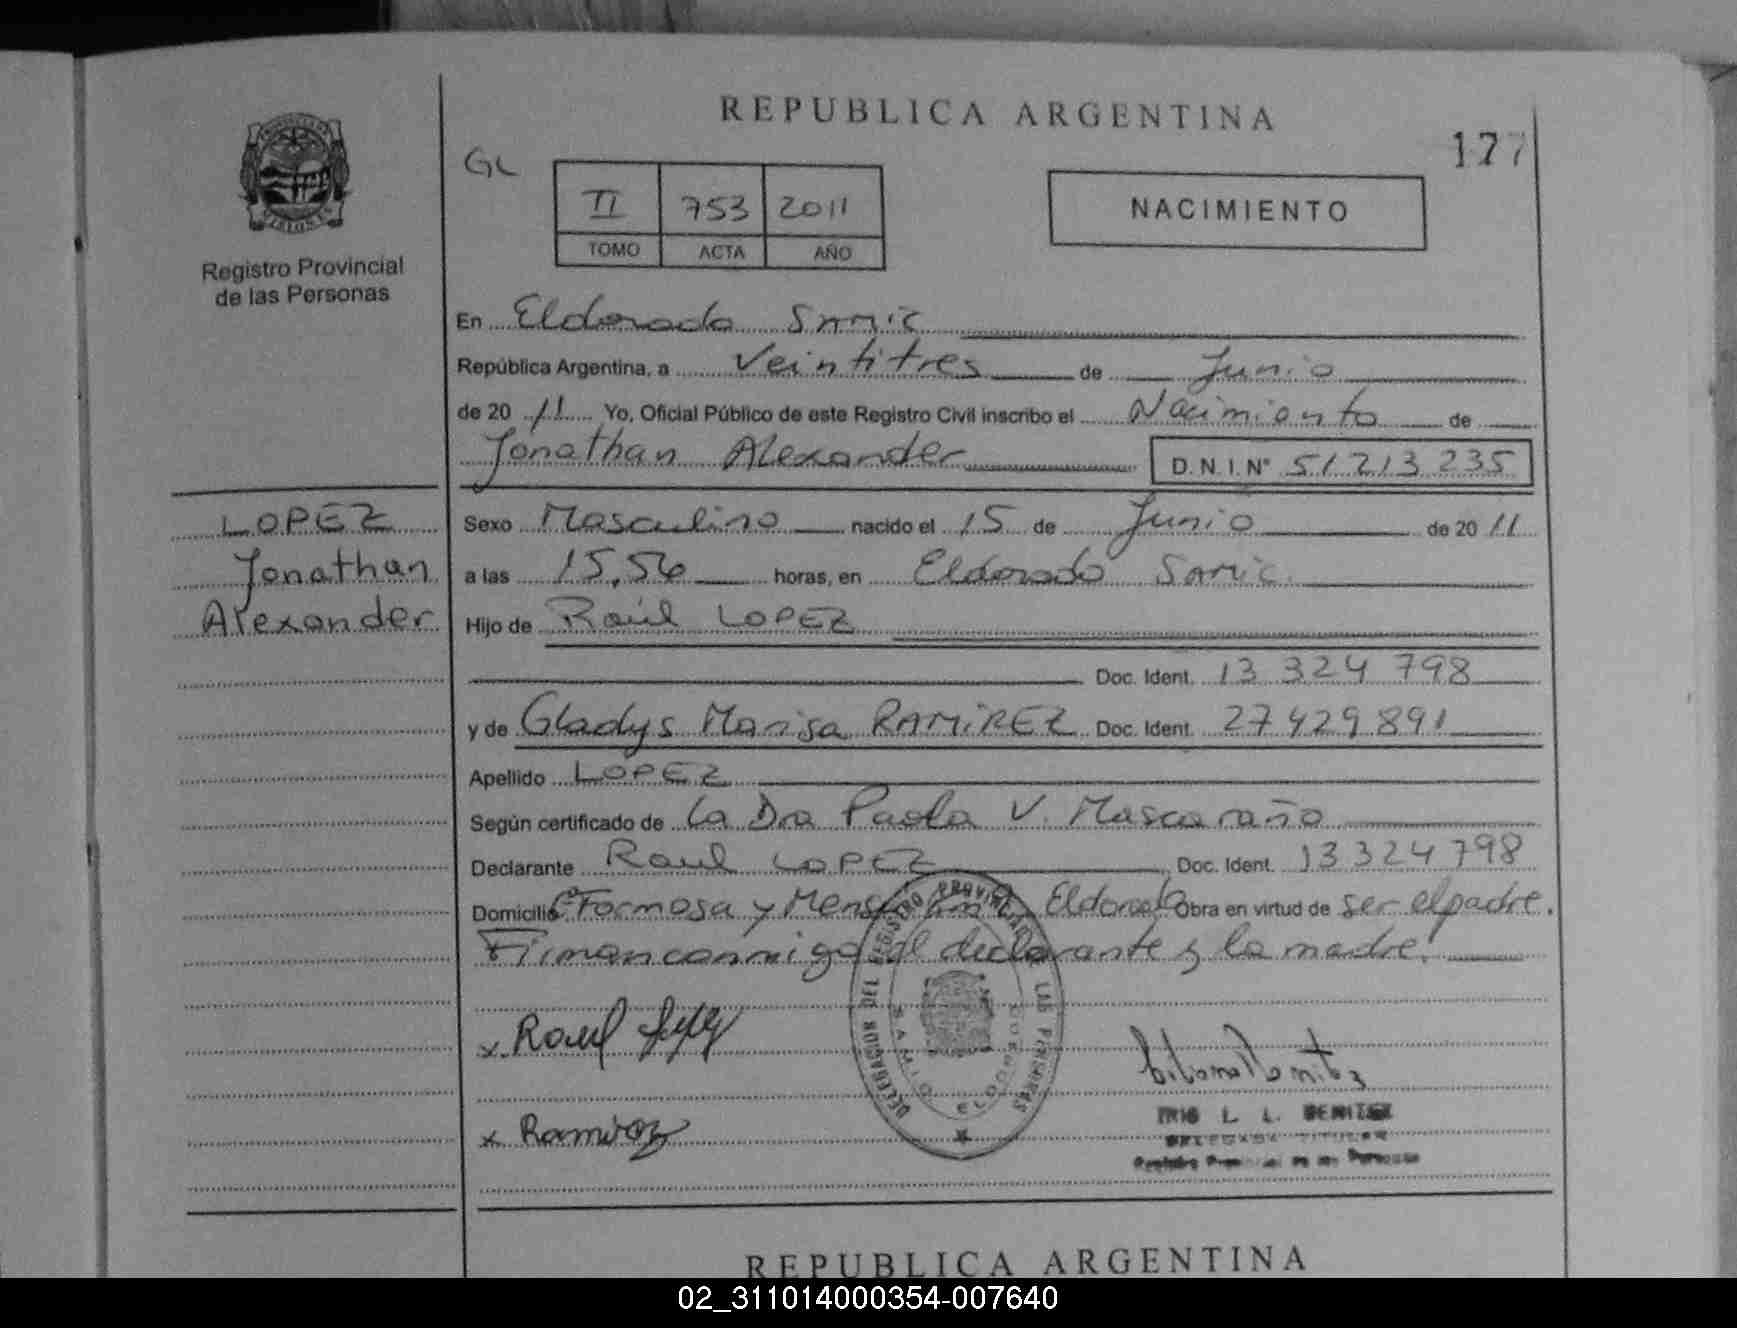 REPUBLICA ARGENTINA
177
GL
II 753 2011
TOMO ACTA AÑO
NACIMIENTO
Registro Provincial
de las Personas
En Eldorado Samic
República Argentina, a Veintitres de Junio
de 20 11 Yo, Oficial Público de este Registro Civil inscribo el Nacimiento de
Jonathan Alexander D.N.I.Nº 51 213 235
LOPEZ
Jonathan
Alexander
Sexo Masculino nacido el 15 de Junio de 20 11
a las 15,56 horas, en Eldorado Samic
Hijo de Raúl LOPEZ
Doc. Ident. 13 324 798
y de Gladys Marisa RAMIREZ Doc. Ident. 27 429 891
Apellido LOPEZ
Según certificado de La Dra Paola V. Mascaraño
Declarante Raul LOPEZ Doc. Ident. 13 324 798
Domicilio Formosa y Eldorado Obra en virtud de ser el padre.
Firman conmigo el declarante y la madre.
x Raul
x Ramirez
DELEGACION DEL REGISTRO PROVINCIAL DE LAS PERSONAS
SAMIC ELDORADO
L. L. BENITEZ
DELEGADA TITULAR
Registro Provincial de las Personas
REPUBLICA ARGENTINA
02_311014000354-007640